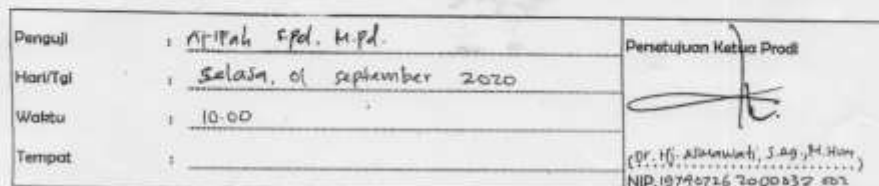 Penguji : Aripah S.Pd. M.Pd.
Hari/Tgl : Selasa, 01 september 2020
Waktu : 10.00
Tempat :
Persetujuan Ketua Prodi
(Dr. Hj. Asmawati, S.Ag., M.Hum)
NIP.